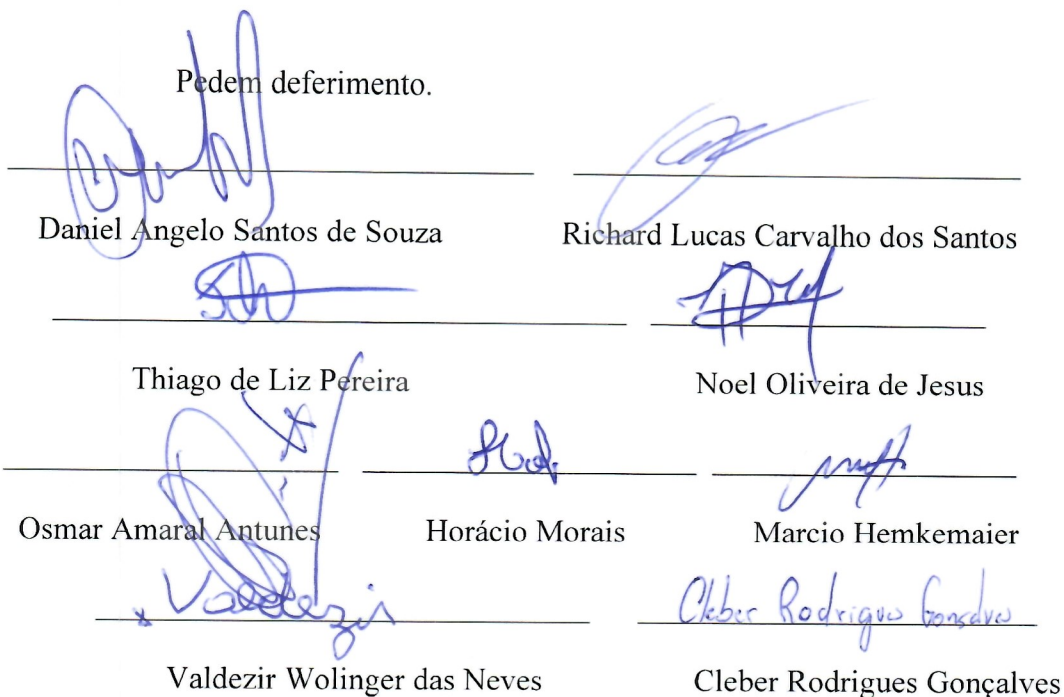 Pedem deferimento.
Daniel Angelo Santos de Souza
Richard Lucas Carvalho dos Santos
Thiago de Liz Pereira
Noel Oliveira de Jesus
Osmar Amaral Antunes
Horácio Morais
Marcio Hemkemaier
x Valdezir
Cleber Rodrigues Gonsalves
Valdezir Wolinger das Neves
Cleber Rodrigues Gonçalves